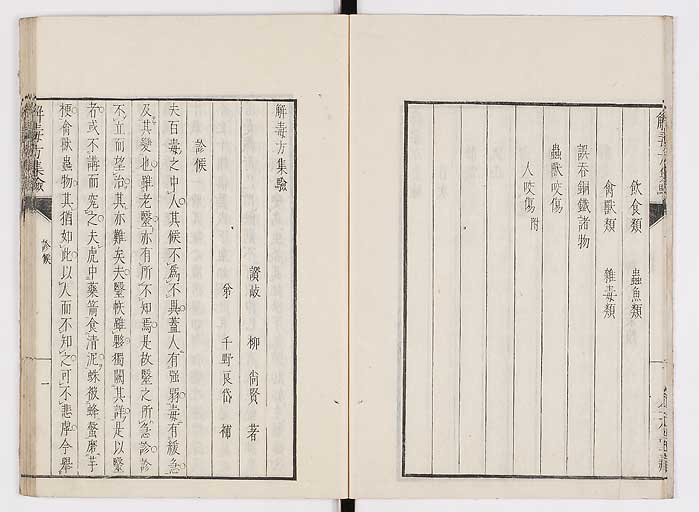 飲食類 蟲魚類
禽獸類 雜毒類
誤吞銅鐵諸物
蟲獸咬傷
人咬傷附
解毒方集驗
解毒方集驗
讚岐 柳尙賢 著
男 千野良岱 補
診候
夫百毒之中人其候不爲不具蓋人有强弱毒有緩急
及其變也雖老醫亦有所不知焉是故醫之所急診診
不立而望治其亦難矣夫醫帙雖夥獨闕其詳是以醫
者或不講而究之夫虎中藥箭食清泥蛛被蜂螫磨芋
梗禽獸蟲物其猶如此以人而不知之可不悲虖今舉
解毒方集驗
診候
一